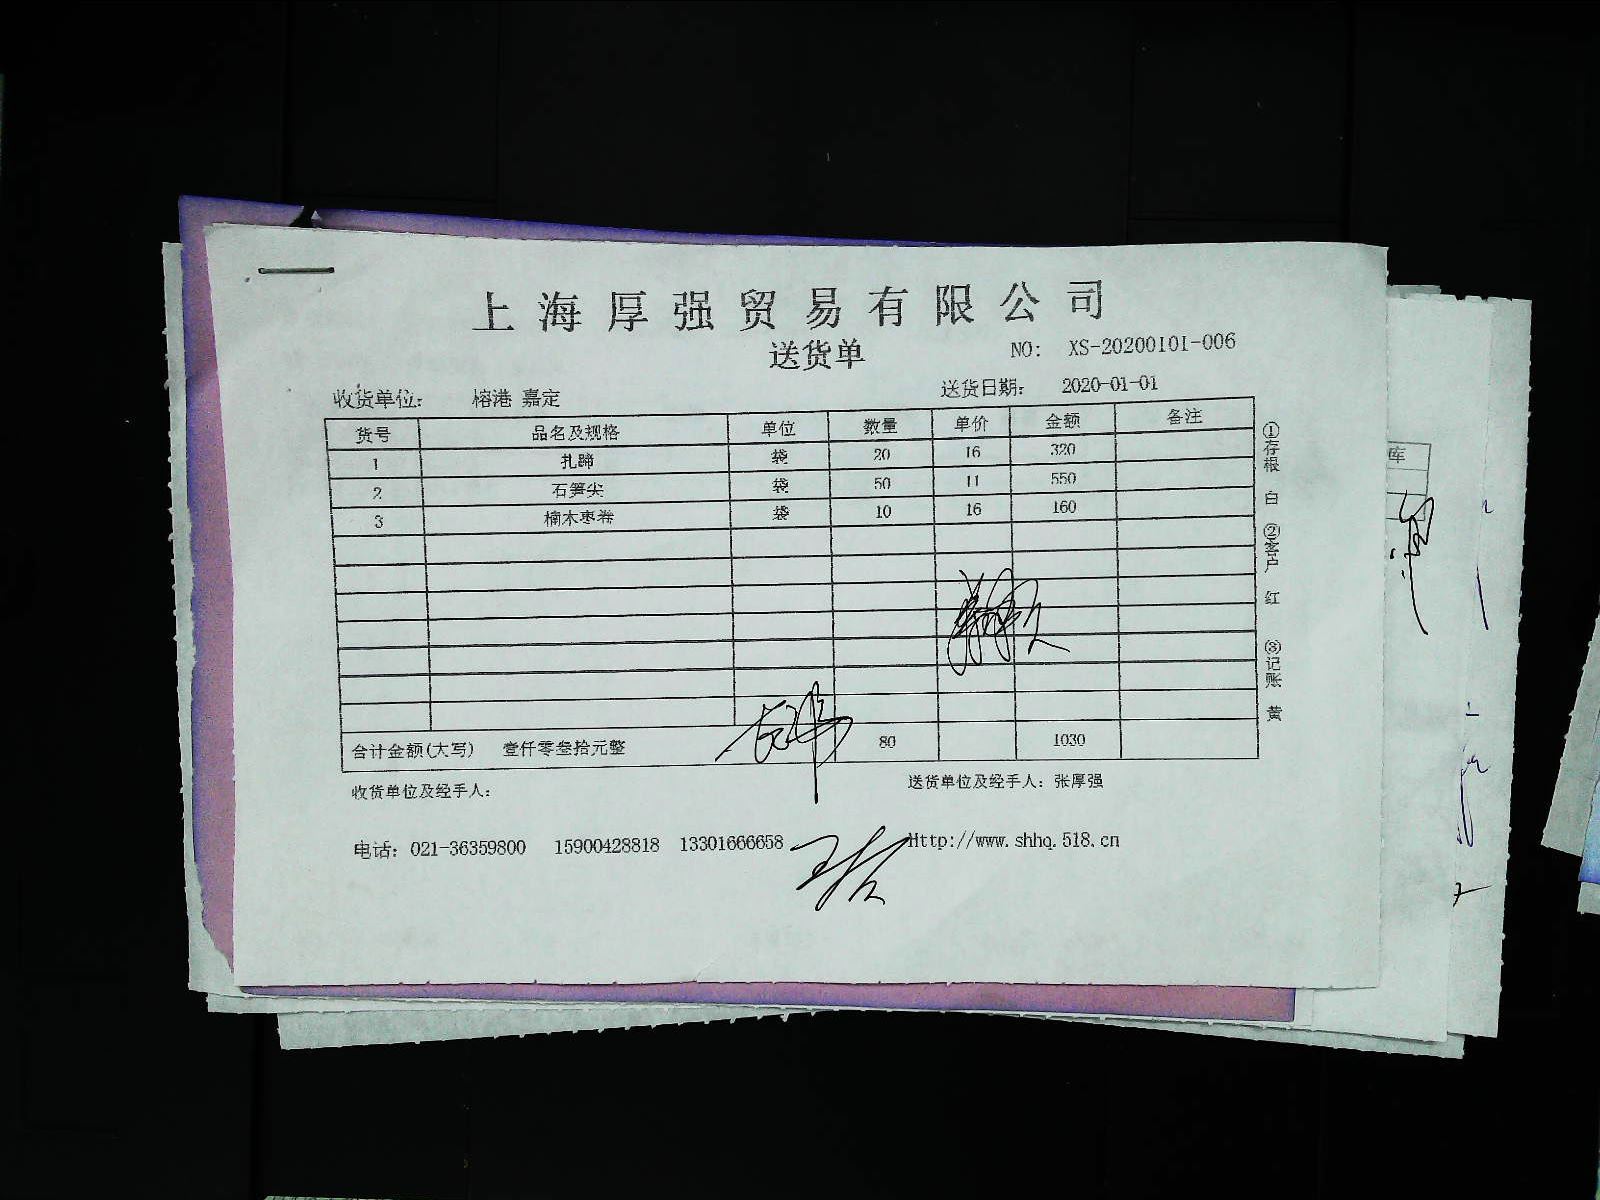 上海厚强贸易有限公司
送货单
NO: XS-20200101-006
收货单位: 榕港 嘉定
送货日期: 2020-01-01
货号 品名及规格 单位 数量 单价 金额 备注
1 扎蹄 袋 20 16 320
2 石笋尖 袋 50 11 550
3 楠木枣卷 袋 10 16 160
合计金额(大写) 壹仟零叁拾元整 80 1030
收货单位及经手人:
送货单位及经手人: 张厚强
电话: 021-36359800 15900428818 13301666658
Http://www.shhq.518.cn
①存根 白 ②客户 红 ③记账 黄
库